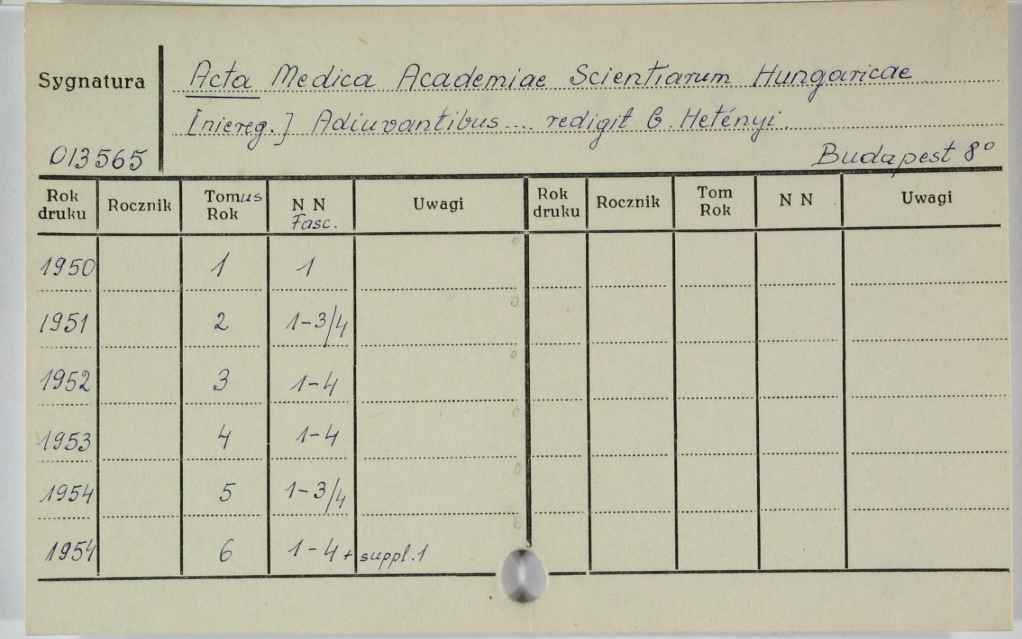 Sygnatura
Acta Medica Academiae Scientiarum Hungaricae
[niereg.] Adiuvantibus... redigit G. Hetényi.
013565
Budapest 8°
Rok druku Rocznik Tomus Rok N N Fasc. Uwagi Rok druku Rocznik Tom Rok N N Uwagi
1950 1 1
1951 2 1-3/4
1952 3 1-4
1953 4 1-4
1954 5 1-3/4
1954 6 1-4 + suppl. 1